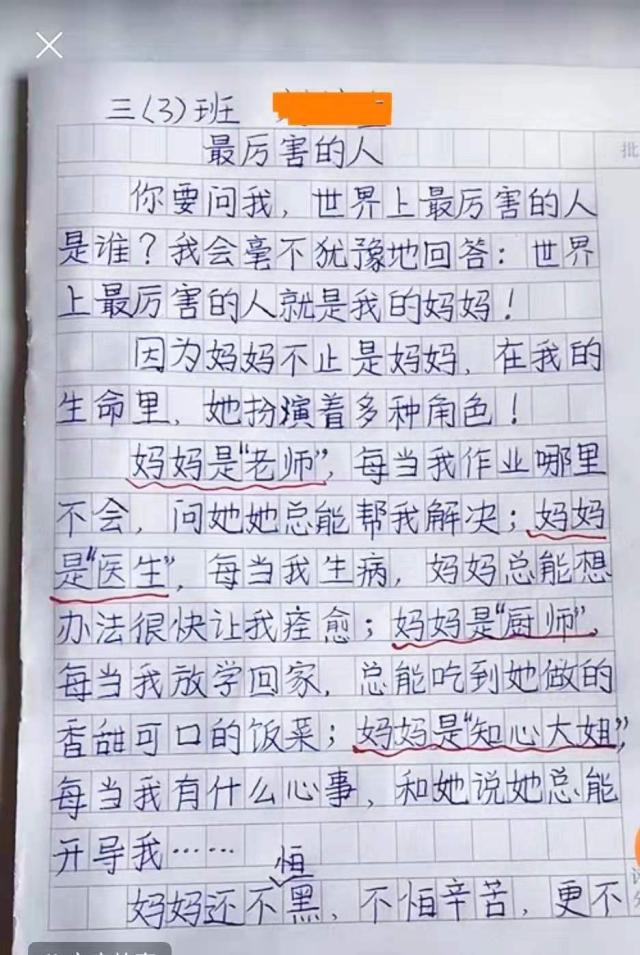 三(3)班
最厉害的人
批
你要问我，世界上最厉害的人
是谁？我会毫不犹豫地回答：世界
上最厉害的人就是我的妈妈！
因为妈妈不止是妈妈，在我的
生命里，她扮演着多种角色！
妈妈是“老师”，每当我作业哪里
不会，问她她总能帮我解决；妈妈
是“医生”，每当我生病，妈妈总能想
办法很快让我痊愈；妈妈是“厨师”，
每当我放学回家，总能吃到她做的
香甜可口的饭菜；妈妈是“知心大姐”，
每当我有什么心事，和她说她总能
开导我……
怕
妈妈还不黑，不怕辛苦，更不